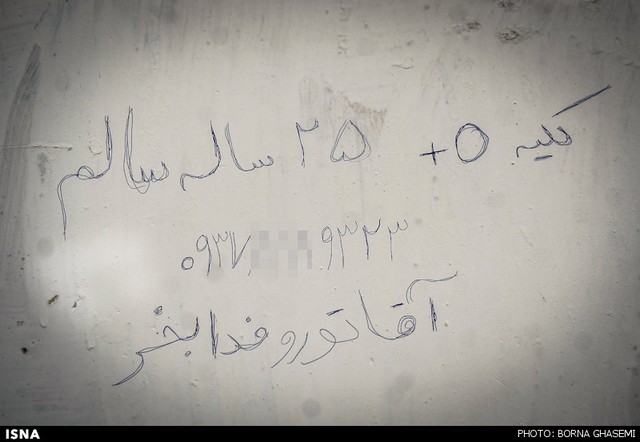 کلیه O+ ۲۵ ساله سالم
۰۹۳۷ ۹۳۲۳
آقا تورو خدا بخر
ISNA
PHOTO: BORNA GHASEMI